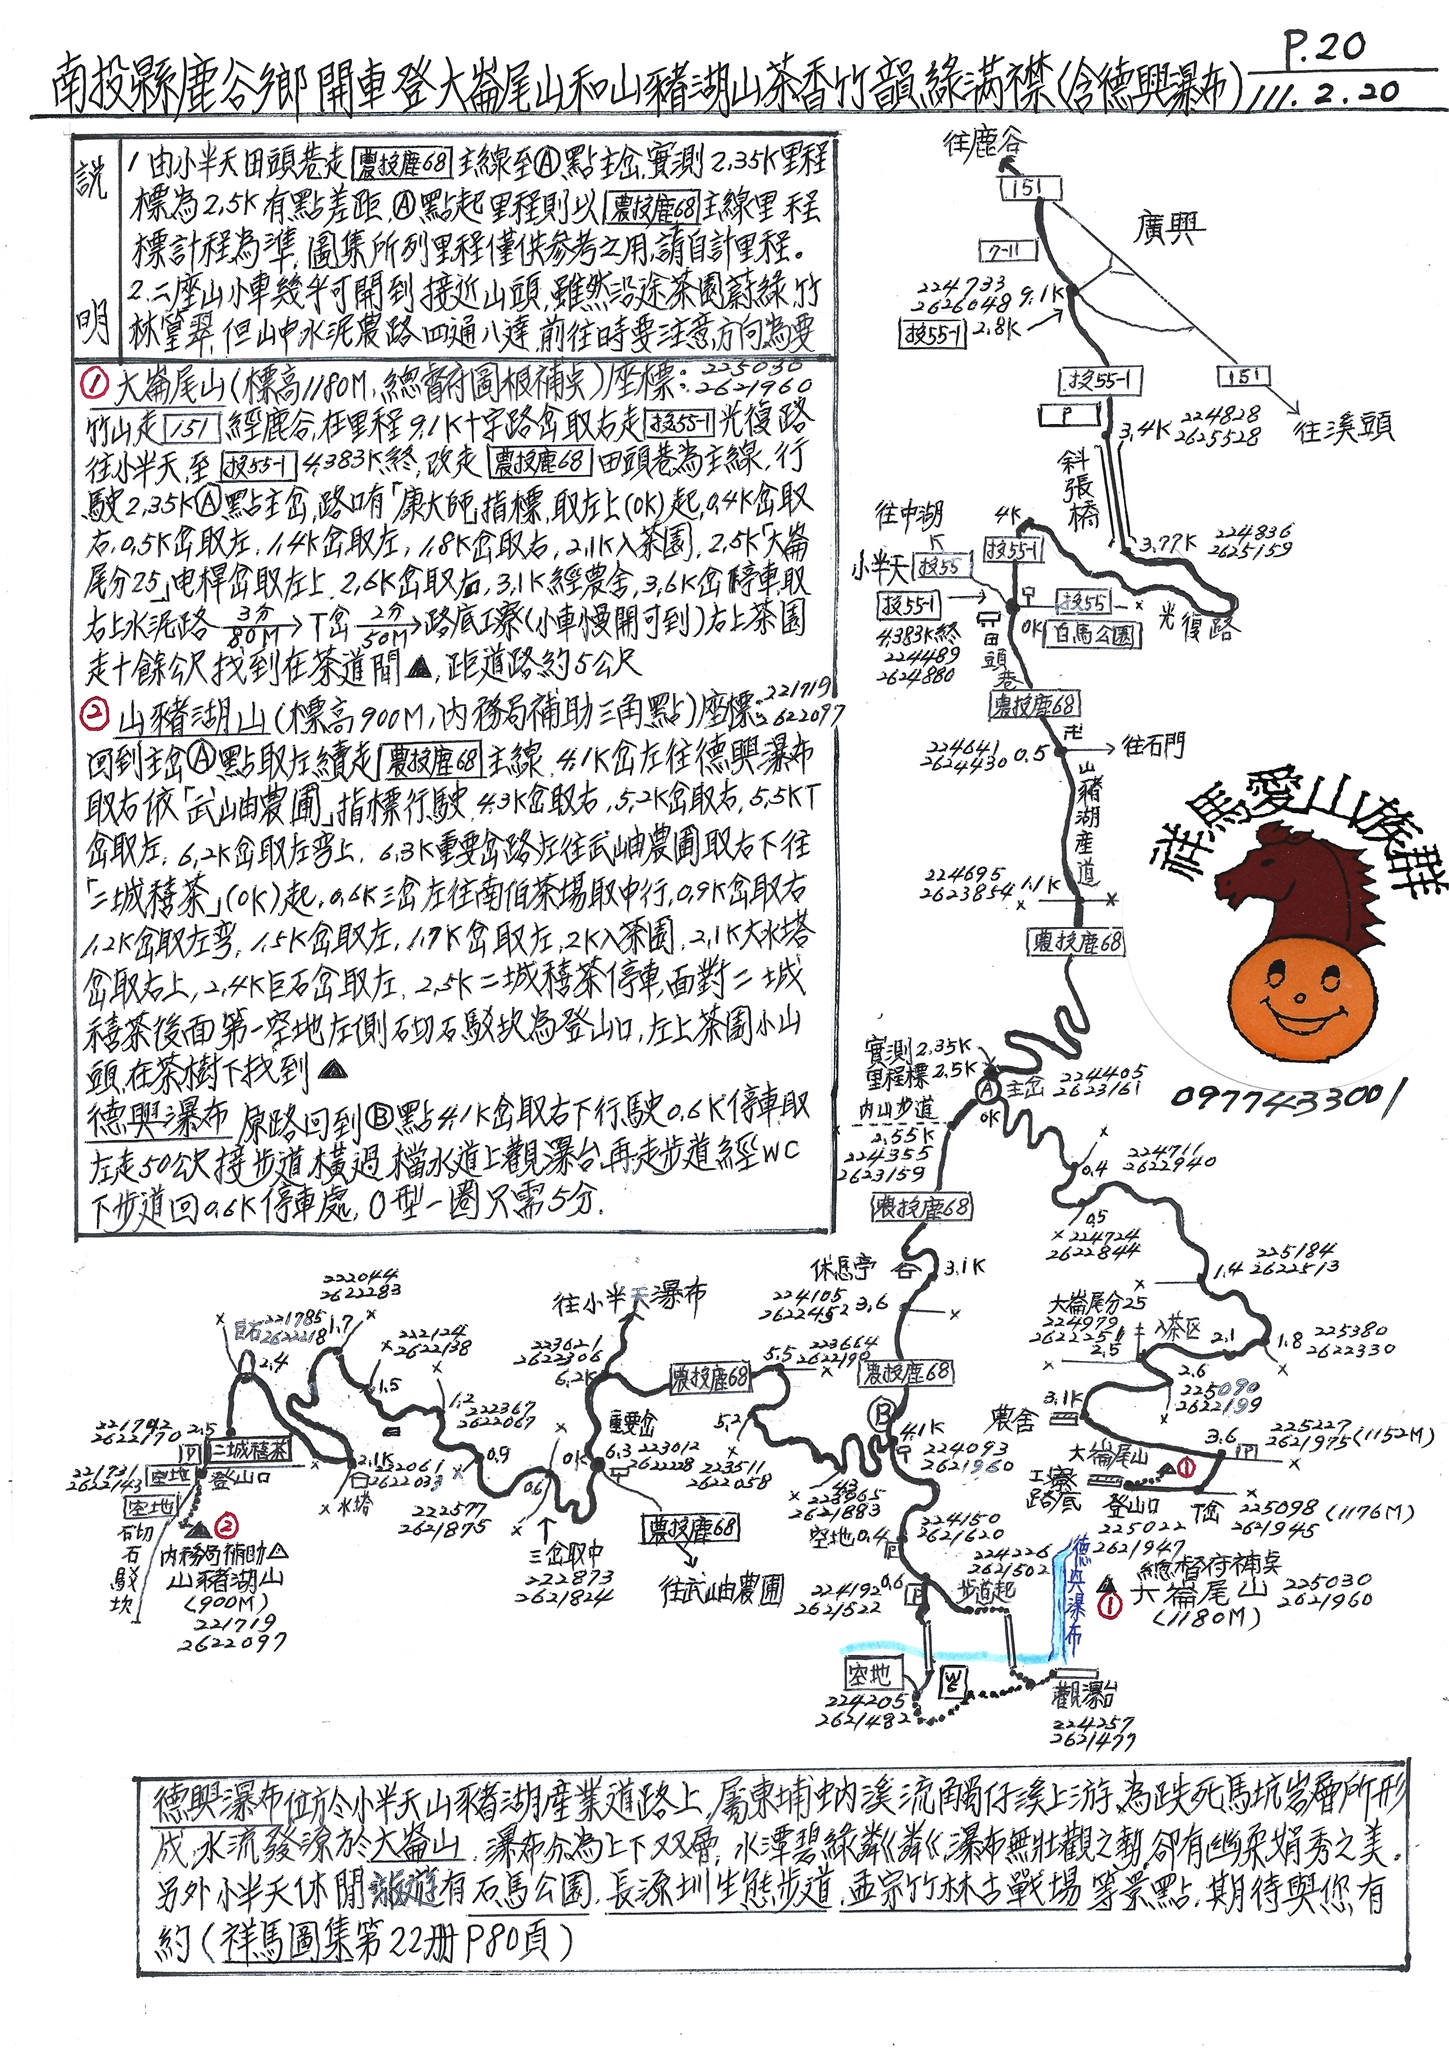 P.20
南投縣鹿谷鄉開車登大崙尾山和山豬湖山茶香竹韻綠滿襟(含德興瀑布)
111.2.20
說明
1.由小半天田頭巷走農投鹿68主線至Ⓐ點主岔,實測2.35K里程
標為2.5K有點差距,Ⓐ點起里程則以農投鹿68主線里程
標計程為準,圖集所列里程僅供參考之用,請自計里程。
2.二座山小車幾乎可開到接近山頭,雖然沿途茶園蔚綠竹
林篁翠,但山中水泥農路四通八達,前往時要注意方向為要
①大崙尾山(標高1180M,總督府圖根補點)座標:225030
2621960
竹山走151經鹿谷,在里程9.1K十字路岔取右走投55-1光復路
往小半天,至投55-1 4.383K終,改走農投鹿68田頭巷為主線,行
駛2.35KⒶ點主岔,路口有「康大師」指標,取左上(0K)起,0.4K岔取
右,0.5K岔取左,1.4K岔取左,1.8K岔取右,2.1K入茶園,2.5K「大崙
尾分25」电桿岔取左上,2.6K岔取右,3.1K經農舍,3.6K岔停車,取
右上水泥路 3分 80M → T岔 2分 50M → 路底工寮(小車慢開可到)右上茶園
走十餘公尺找到在茶道間▲,距道路約5公尺
②山豬湖山(標高900M,內務局補助三角點)座標:221719
2622097
回到主岔Ⓐ點取左續走農投鹿68主線,4.1K岔左往德興瀑布
取右依「武岫農圃」指標行駛,4.3K岔取右,5.2K岔取右,5.5KT
岔取左,6.2K岔取左弯上,6.3K重要岔路左往武岫農圃取右下往
「二城禧茶」(0K)起,0.6K三岔左往南伯茶場取中行,0.9K岔取右
1.2K岔取左弯,1.5K岔取左,1.7K岔取左,2K入茶園,2.1K大水塔
岔取右上,2.4K巨石岔取左,2.5K二城禧茶停車,面對二城
禧茶後面第一空地左側石切石駁坎為登山口,左上茶園小山
頭,在茶樹下找到▲
德興瀑布 原路回到Ⓑ點4.1K岔取右下行駛0.6K停車,取
左走50公尺接步道橫過檔水道上觀瀑台,再走步道經WC
下步道回0.6K停車處,O型一圈只需5分.
往鹿谷
151
廣興
7-11
224733
2626048 9.1K
投55-1 2.8K
投55-1
151
P
3.4K 224828
2625528
往溪頭
斜張橋
往中湖
4K
投55-1
3.77K 224836
2625159
小半天 投55
投55-1
投55
光復路
0K 白馬公園
4.383K終
224489
2624880
田頭巷
農投鹿68
224641
2624430 0.5
卍
往石門
山豬湖產道
224695
2623854 1.1K
農投鹿68
祥馬愛山族群
0977433001
實測2.35K
里程標2.5K
Ⓐ主岔 224405
2623161
0K
內山步道
2.55K
224355
2623159
農投鹿68
224711
0.4 2622940
0.5
224724
2622844
休息亭 3.1K
224105
2622452 3.6
225184
1.4 2622513
大崙尾分25
224979
2622251
2.5
入茶区
2.1
1.8 225380
2622330
2.6
225090
2622199
3.1K
農舍
225227
3.6 2621975(1152M)
P
大崙尾山
①
工寮
路底
登山口
225022
2621947
T岔 225098(1176M)
2621945
總督府補點
▲①大崙尾山 225030
(1180M) 2621960
農投鹿68
Ⓑ 4.1K
224093
2621960
往小半天瀑布
223621
2622306
6.2K
農投鹿68
5.5
223664
2622190
5.2
223511
2622058
4.3
223865
2621883
重要岔
6.3 223012
2622228
0K
農投鹿68
往武岫農圃
0.6
三岔取中
222873
2621824
0.9
222577
2621875
1.2 222367
2622067
1.5
222124
2622138
222044
2622283
1.7
221785
2622218
巨石
2.4
2.1K
222061
2622033
水塔
221702
2622170 2.5
P 二城禧茶
221731
2622143
空地
登山口
空地
石切石駁坎
▲②
內務局補助△
山豬湖山
(900M)
221719
2622097
224150
2621620
空地0.4
P
224192 0.6
2621522
P
224226
2621502
步道起
德興瀑布
空地
224205
2621482
WC
觀瀑台
224257
2621477
德興瀑布位於小半天山豬湖產業道路上,屬東埔蚋溪流觸仔溪上游,為跌死馬坑岩層所形
成,水流發源於大崙山,瀑布分為上下双層,水潭碧綠粼粼,瀑布無壯觀之勢,卻有幽柔娟秀之美。
另外小半天休閒旅遊有石馬公園,長源圳生態步道,孟宗竹林古戰場等景點,期待與您有
約(祥馬圖集第22册P80頁)